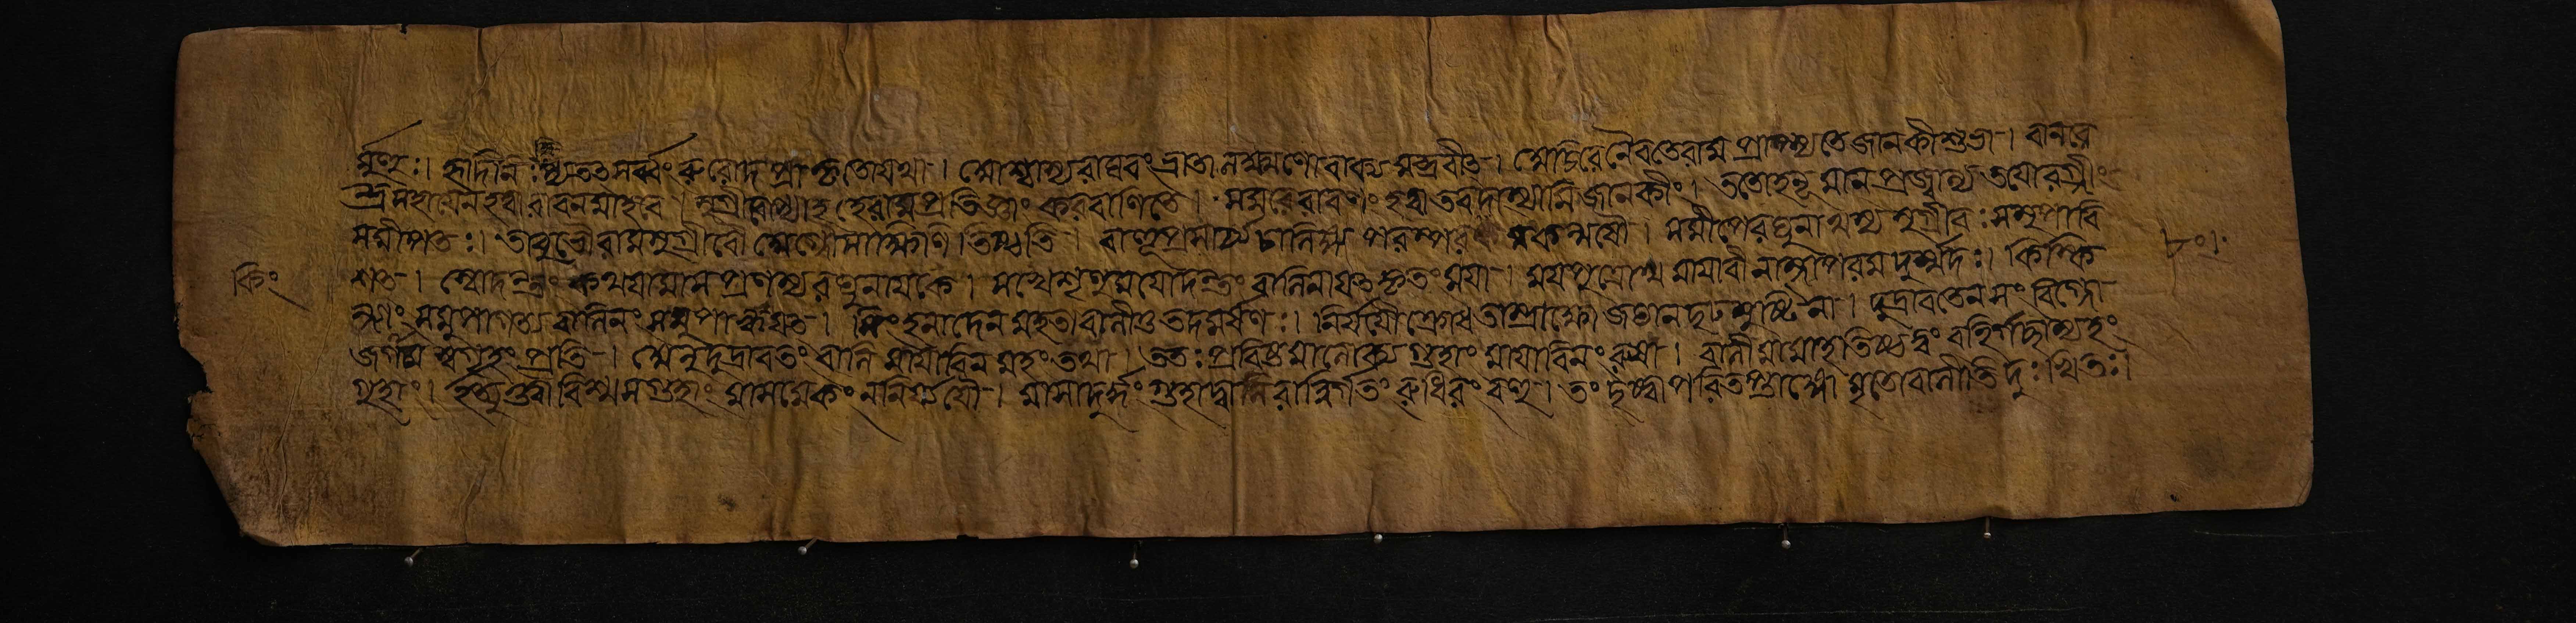 র্ম্মুহুঃ। হৃদিনিক্ষিপ্যতত্সর্ব্বংরুরোদপ্রাকৃতোযথা। আশ্বাস্যরাঘবংভ্রাতালক্ষ্মণোবাক্যমব্রবীত্। অচিরেনৈবতেরামপ্রাপ্স্যতেজানকীশুভা। বানরে
ন্দ্রসহায়েনহত্বারাবনমাহবে। সুগ্রীবোপ্যাহহেরামপ্রতিজ্ঞাংকরবাণিতে। সমরেরাবণংহত্বাতবদাস্যামিজানকীং। ততোহনূমানপ্রজ্বাল্যতয়োরগ্নীং
সমীপতঃ। তাবুভৌরামসুগ্রীবৌঅগ্নৌসাক্ষিণিতিষ্ঠতি। বাহূপ্রসার্য্যচালিঙ্গ্যপরস্পরমকল্মষৌ। সমীপেরঘুনাথস্যসুগ্রীবঃসমুপাবি
শত্। স্বোদন্তংকথয়ামাসপ্রণয়্যরঘুনায়কে। সখেশৃণুমমোদন্তংবালিনাযত্কৃতংময়া। ময়পুত্রোথমায়াবীনাম্নাপরমদুর্ম্মদঃ। কিষ্কি
ন্ধাংসমুপাগত্যবালিনংসমুপাহ্বয়ত্। সিংহনাদেনমহতাবালীতুতদমর্ষণঃ। নির্যযৌক্রোধতাম্রাক্ষোজঘানদৃঢ়মুষ্টিনা। দুদ্রাবতেনসংবিগ্নো
জগামস্বগুহাংপ্রতি। অনুদুদ্রাবতংবালিমায়াবিনমহংতথা। ততঃপ্রবিষ্টমালোক্যগুহাংমায়াবিনংরুষা। বালীমামাহতিষ্ঠত্বংবহির্গচ্ছাম্যহং
গুহাং। ইত্যুক্ত্বাবিশ্যসগুহাংমাসমেকংননির্যযৌ। মাসাদূর্দ্ধংগুহাদ্বালিরান্নির্গতংরুধিরংবহু। তংদৃষ্ট্বাপরিতপ্তাঙ্গোমৃতোবালীতিদুঃখিতঃ।
কিং